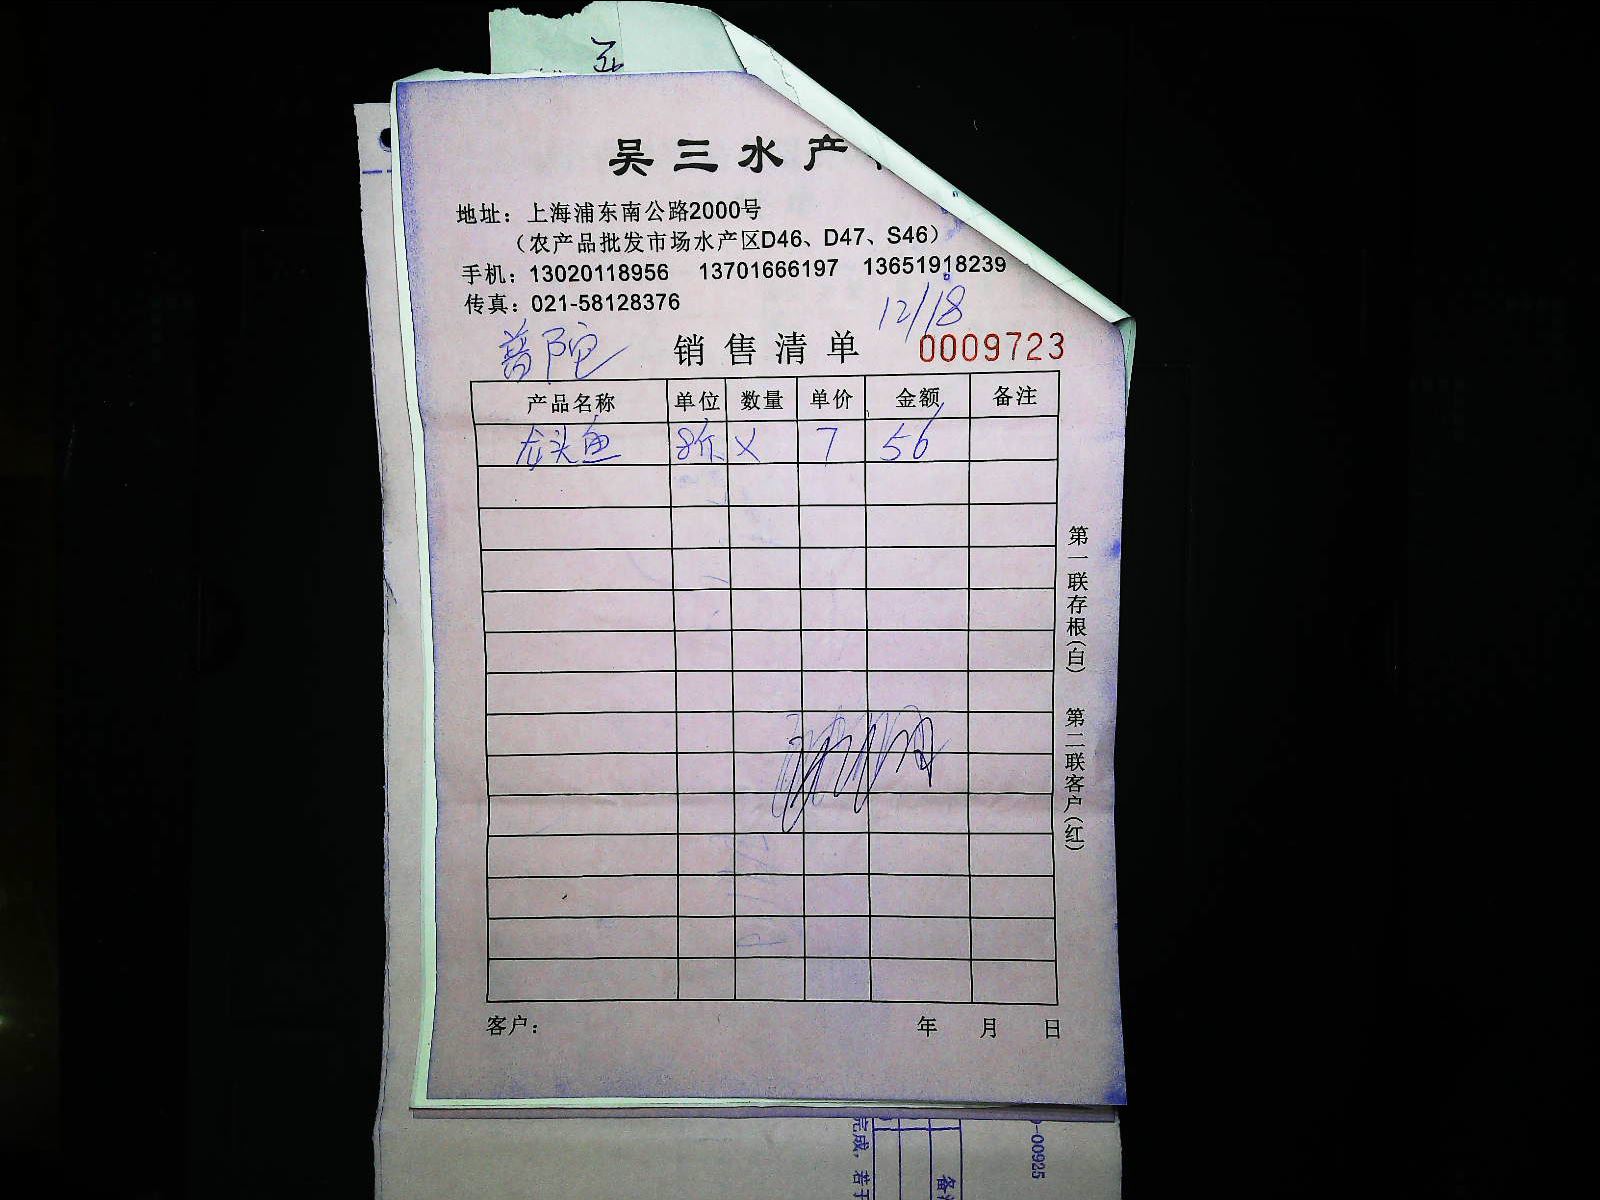 吴三水产
地址：上海浦东南公路2000号
（农产品批发市场水产区D46、D47、S46）
手机：13020118956 13701666197 13651918239
传真：021-58128376
12/18
普陀 销售清单 0009723
产品名称 单位 数量 单价 金额 备注
龙头鱼 8斤 × 7 56
第一联存根（白） 第二联客户（红）
客户： 年 月 日
完成，若于
备注
-00925